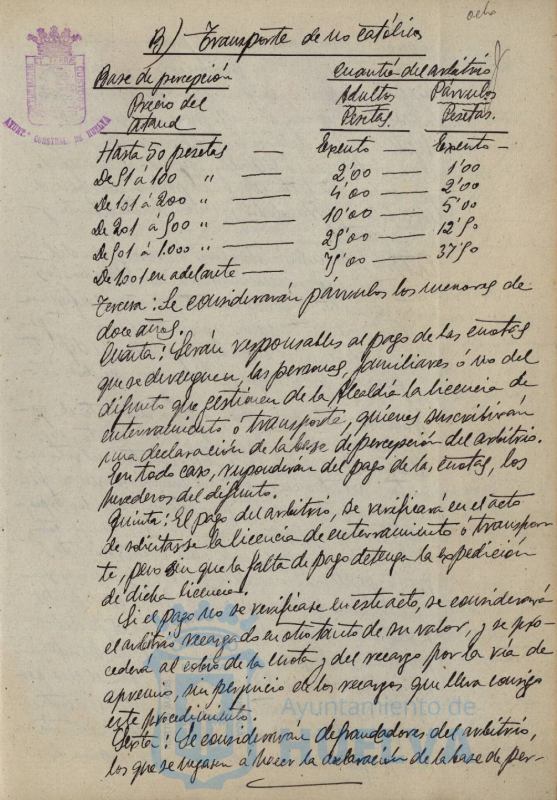 ocho
B) Transporte de no católicos
Base de percepción Cuantía del arbitrio
Precio del Adultos Párvulos
Ataud Pesetas. Pesetas.
Hasta 50 pesetas — Exento — Exento —
De 51 á 100 " — 2'00 — 1'00
De 101 á 200 " — 4'00 — 2'00
De 201 á 500 " — 10'00 — 5'00
De 501 á 1.000 " — 25'00 — 12'50
De 1001 en adelante — 75'00 — 37'50
Tercera: Se considerarán párvulos los menores de
doce años.
Cuarta: Serán responsables al pago de las cuotas
que se devenguen, las personas, familiares ó no del
difunto que gestionen de la Alcaldía la licencia de
enterramiento ó transporte, quienes suscribirán
una declaración de la base de percepción del arbitrio.
En todo caso, responderán del pago de las cuotas, los
herederos del difunto.
Quinta: El pago del arbitrio, se verificará en el acto
de solicitarse la licencia de enterramiento ó transpor-
te, pero sin que la falta de pago detenga la expedición
de dicha licencia.
Si el pago no se verificase en este acto, se considerará
el arbitrio recargado en otro tanto de su valor, y se pro-
cederá al cobro de la cuota y del recargo por la vía de
apremio, sin perjuicio de los recargos que lleva consigo
este procedimiento.
Sexta: Se considerarán defraudadores del arbitrio,
los que se negasen á hacer la declaración de la base de per-
AYUNT.º CONSTNAL. DE HUELVA
Ayuntamiento de
HUELVA